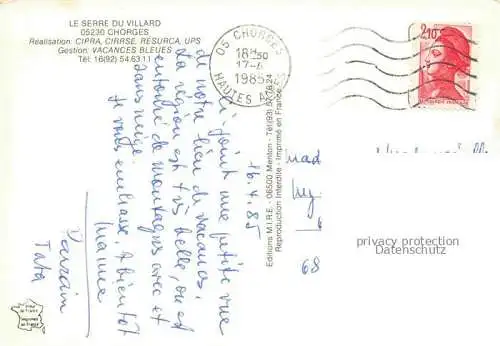 LE SERRE DU VILLARD
05230 CHORGES
Réalisation: CIPRA, CIRRSE, RESURCA, UPS
Gestion: VACANCES BLEUES
Tél: 16(92) 54.63.11
05 CHORGES
18H30
17-6
1985
HAUTES ALPES
2,10
16.4.85
Ci joint une petite vue
de notre lieu de vacances.
La région est très belle, on est
entouré de montagnes avec et
sans neige.
Je vous embrasse, à bientôt
Mamie
Parrain
Tata
Editions M.I.R.E. - 06500 Menton - Tél (93) 57.78.24
Reproduction Interdite - Imprimé en France
Mad
68
privacy protection
Datenschutz